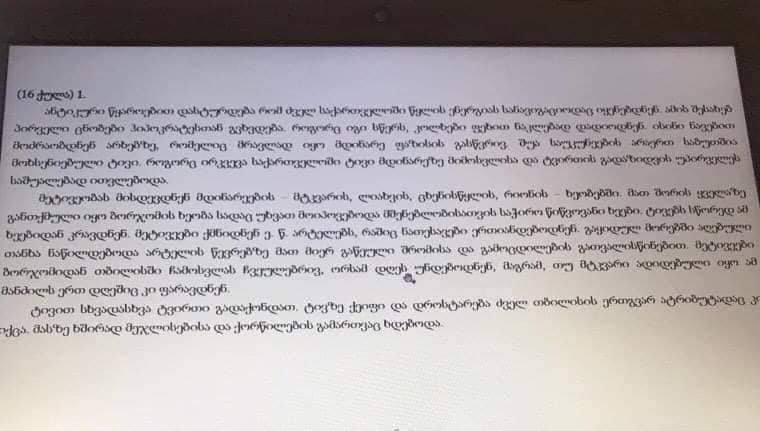 (16 ქულა) 1.
ანტიკური წყაროებით დასტურდება რომ ძველ საქართველოში წყლის ენერგიას სანავიგაციოდაც იყენებდნენ. ამის შესახებ
პირველი ცნობები ჰიპოკრატესთან გვხვდება. როგორც იგი სწერს, კოლხები ფეხით ნაკლებად დადიოდნენ. ისინი ნავებით
მოძრაობდნენ არხებზე, რომელიც მრავლად იყო მდინარე ფაზისის გასწვრივ. შუა საუკუნეების არაერთ საბუთშია
მოხსენიებული ტივი. როგორც ირკვევა საქართველოში ტივი მდინარეზე მიმოსვლისა და ტვირთის გადაზიდვის უპირველეს
საშუალებად ითვლებოდა.
მეტივეობას მისდევდნენ მდინარეების – მტკვარის, ლიახვის, ცხენისწყლის, რიონის – ხეობებში. მათ შორის ყველაზე
განთქმული იყო ბორჯომის ხეობა სადაც უხვათ მოიპოვებოდა მშენებლობისათვის საჭირო წიწვოვანი ხეები. ტივებს სწორედ ამ
ხეებიდან კრავდნენ. მეტივეები ქმნიდნენ ე. წ. არტელებს, რაშიც ნათესავები ერთიანდებოდნენ. გაყიდულ მორებში აღებული
თანხა ნაწილდებოდა არტელის წევრებზე მათ მიერ გაწეული შრომისა და გამოცდილების გათვალისწინებით. მეტივეები
ბორჯომიდან თბილისში ჩამოსვლას ჩვეულებრივ, ორსამ დღეს უნდებოდნენ, მაგრამ, თუ მტკვარი ადიდებული იყო ამ
მანძილს ერთ დღეშიც კი ფარავდნენ.
ტივით სხვადასხვა ტვირთი გადაქონდათ. ტივზე ქეიფი და დროსტარება ძველ თბილისის ერთგვარ ატრიბუტადაც კი
იქცა. მასზე ხშირად მეჯლისებისა და ქორწილების გამართვაც ხდებოდა.